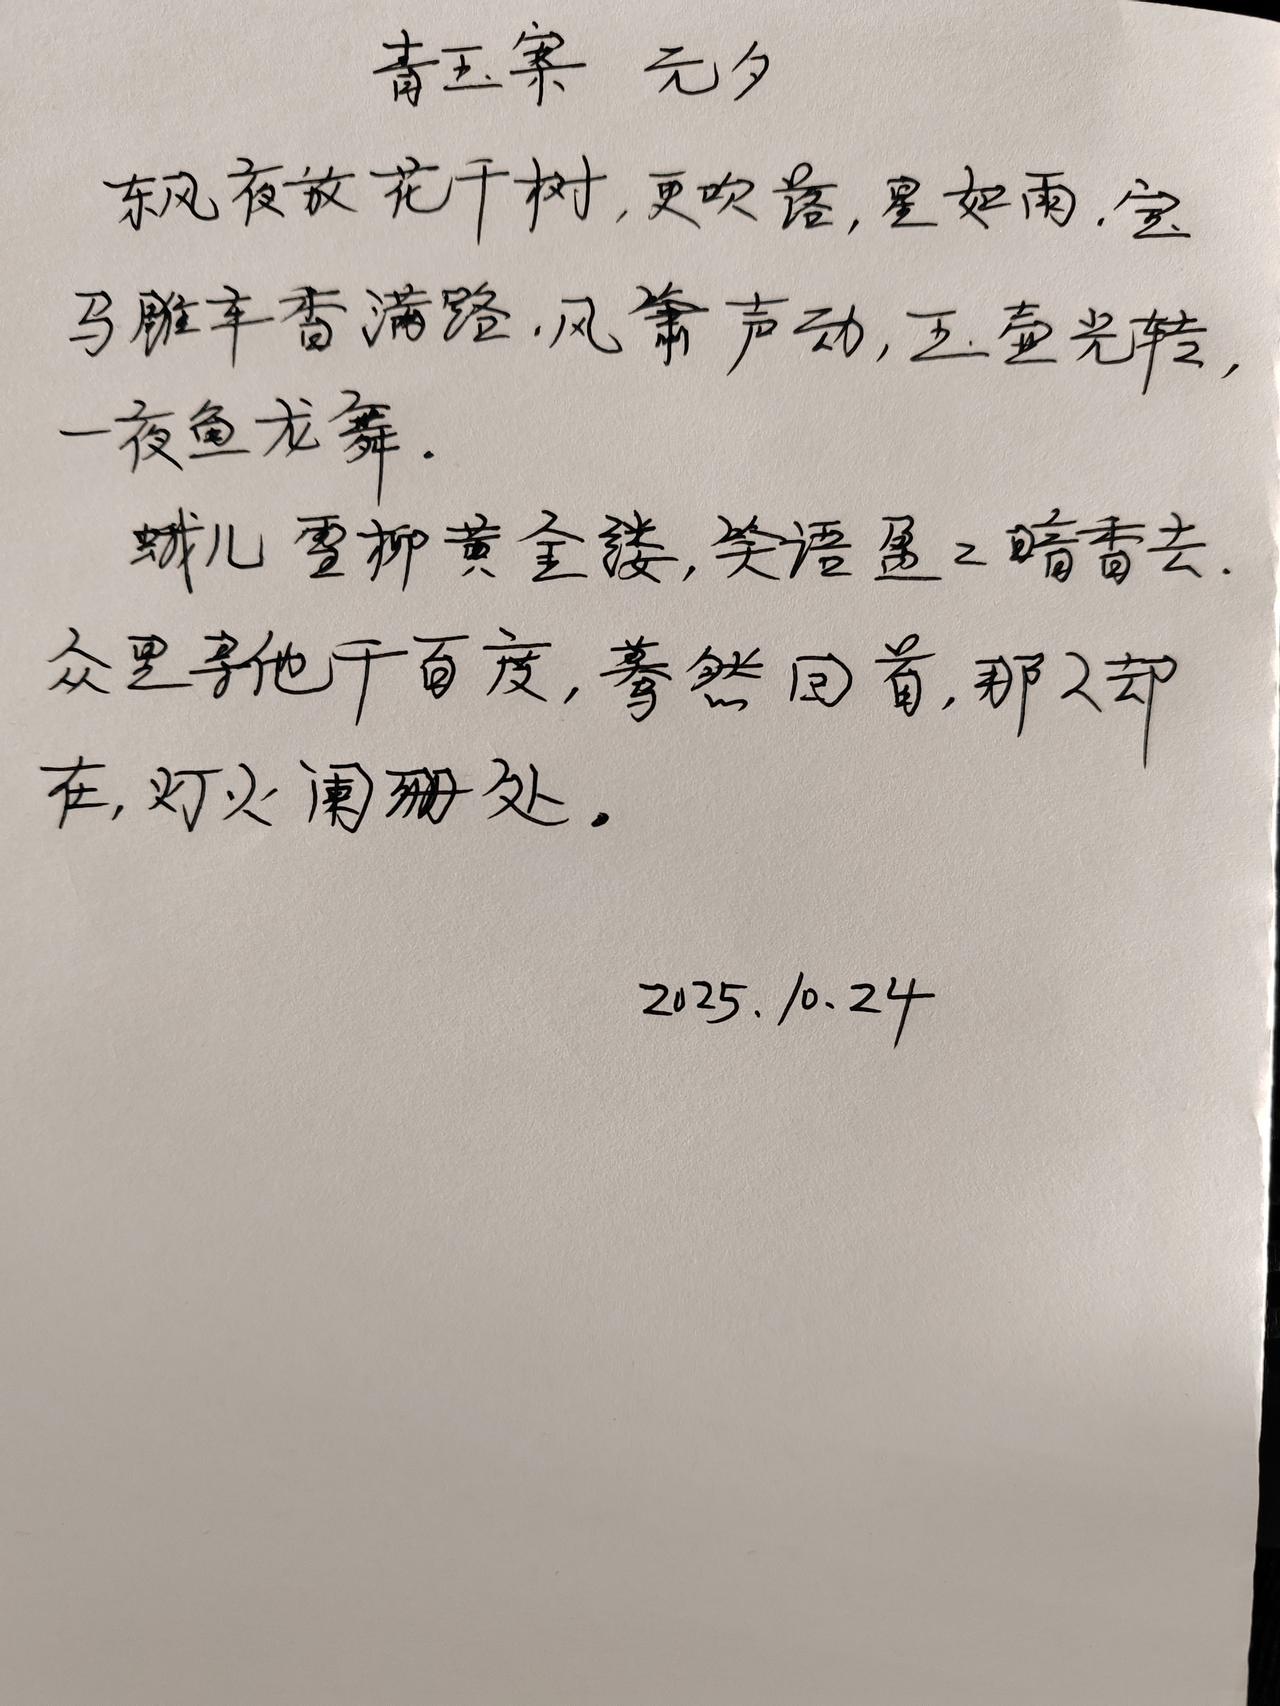 青玉案 元夕
东风夜放花千树,更吹落,星如雨.宝
马雕车香满路.风箫声动,玉壶光转,
一夜鱼龙舞.
蛾儿雪柳黄金缕,笑语盈々暗香去.
众里寻他千百度,蓦然回首,那人却
在,灯火阑珊处.
2025.10.24